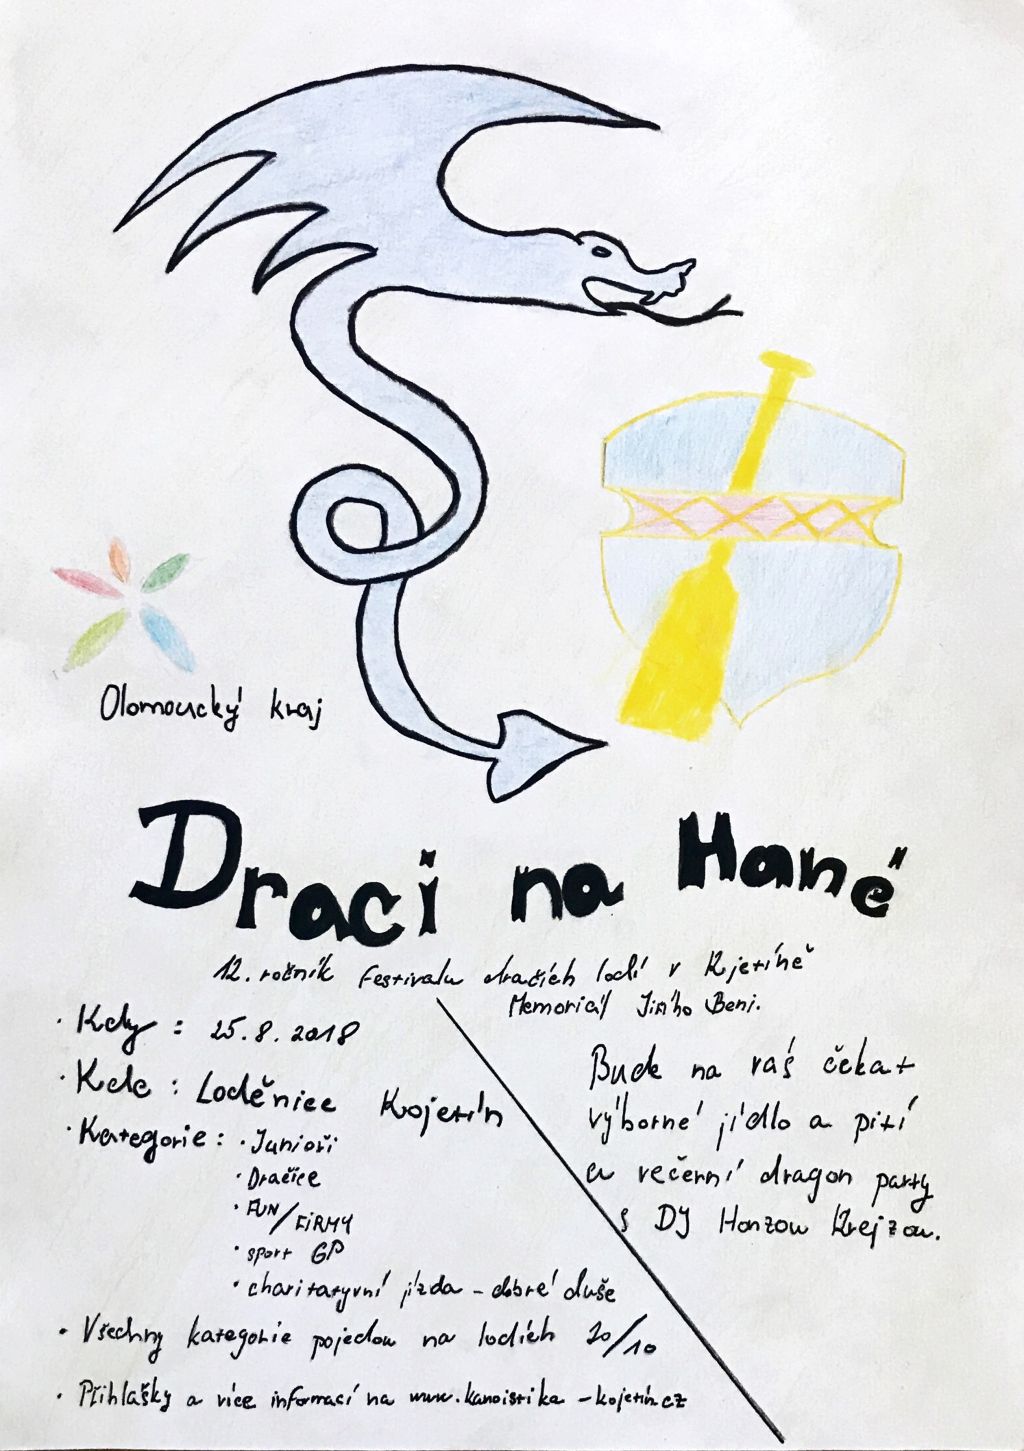 Olomoucký kraj
Draci na Hané
12. ročník Festivalu dračích lodí v Kojetíně
Memoriál Jiřího Beni.
• Kdy : 25.8.2018
• Kde : Loděnice Kojetín
• Kategorie : • Junioři
• Dračice
• FUN/FiRMY
• sport GP
• charitatyvní jízda - dobré duše
• Všechny kategorie pojedou na lodích 20/10
• Přihlášky a více informací na www.kanoistika-kojetin.cz
Bude na váš čekat
výborné jídlo a pití
a večerní dragon party
s DJ Honzou Krejzou.